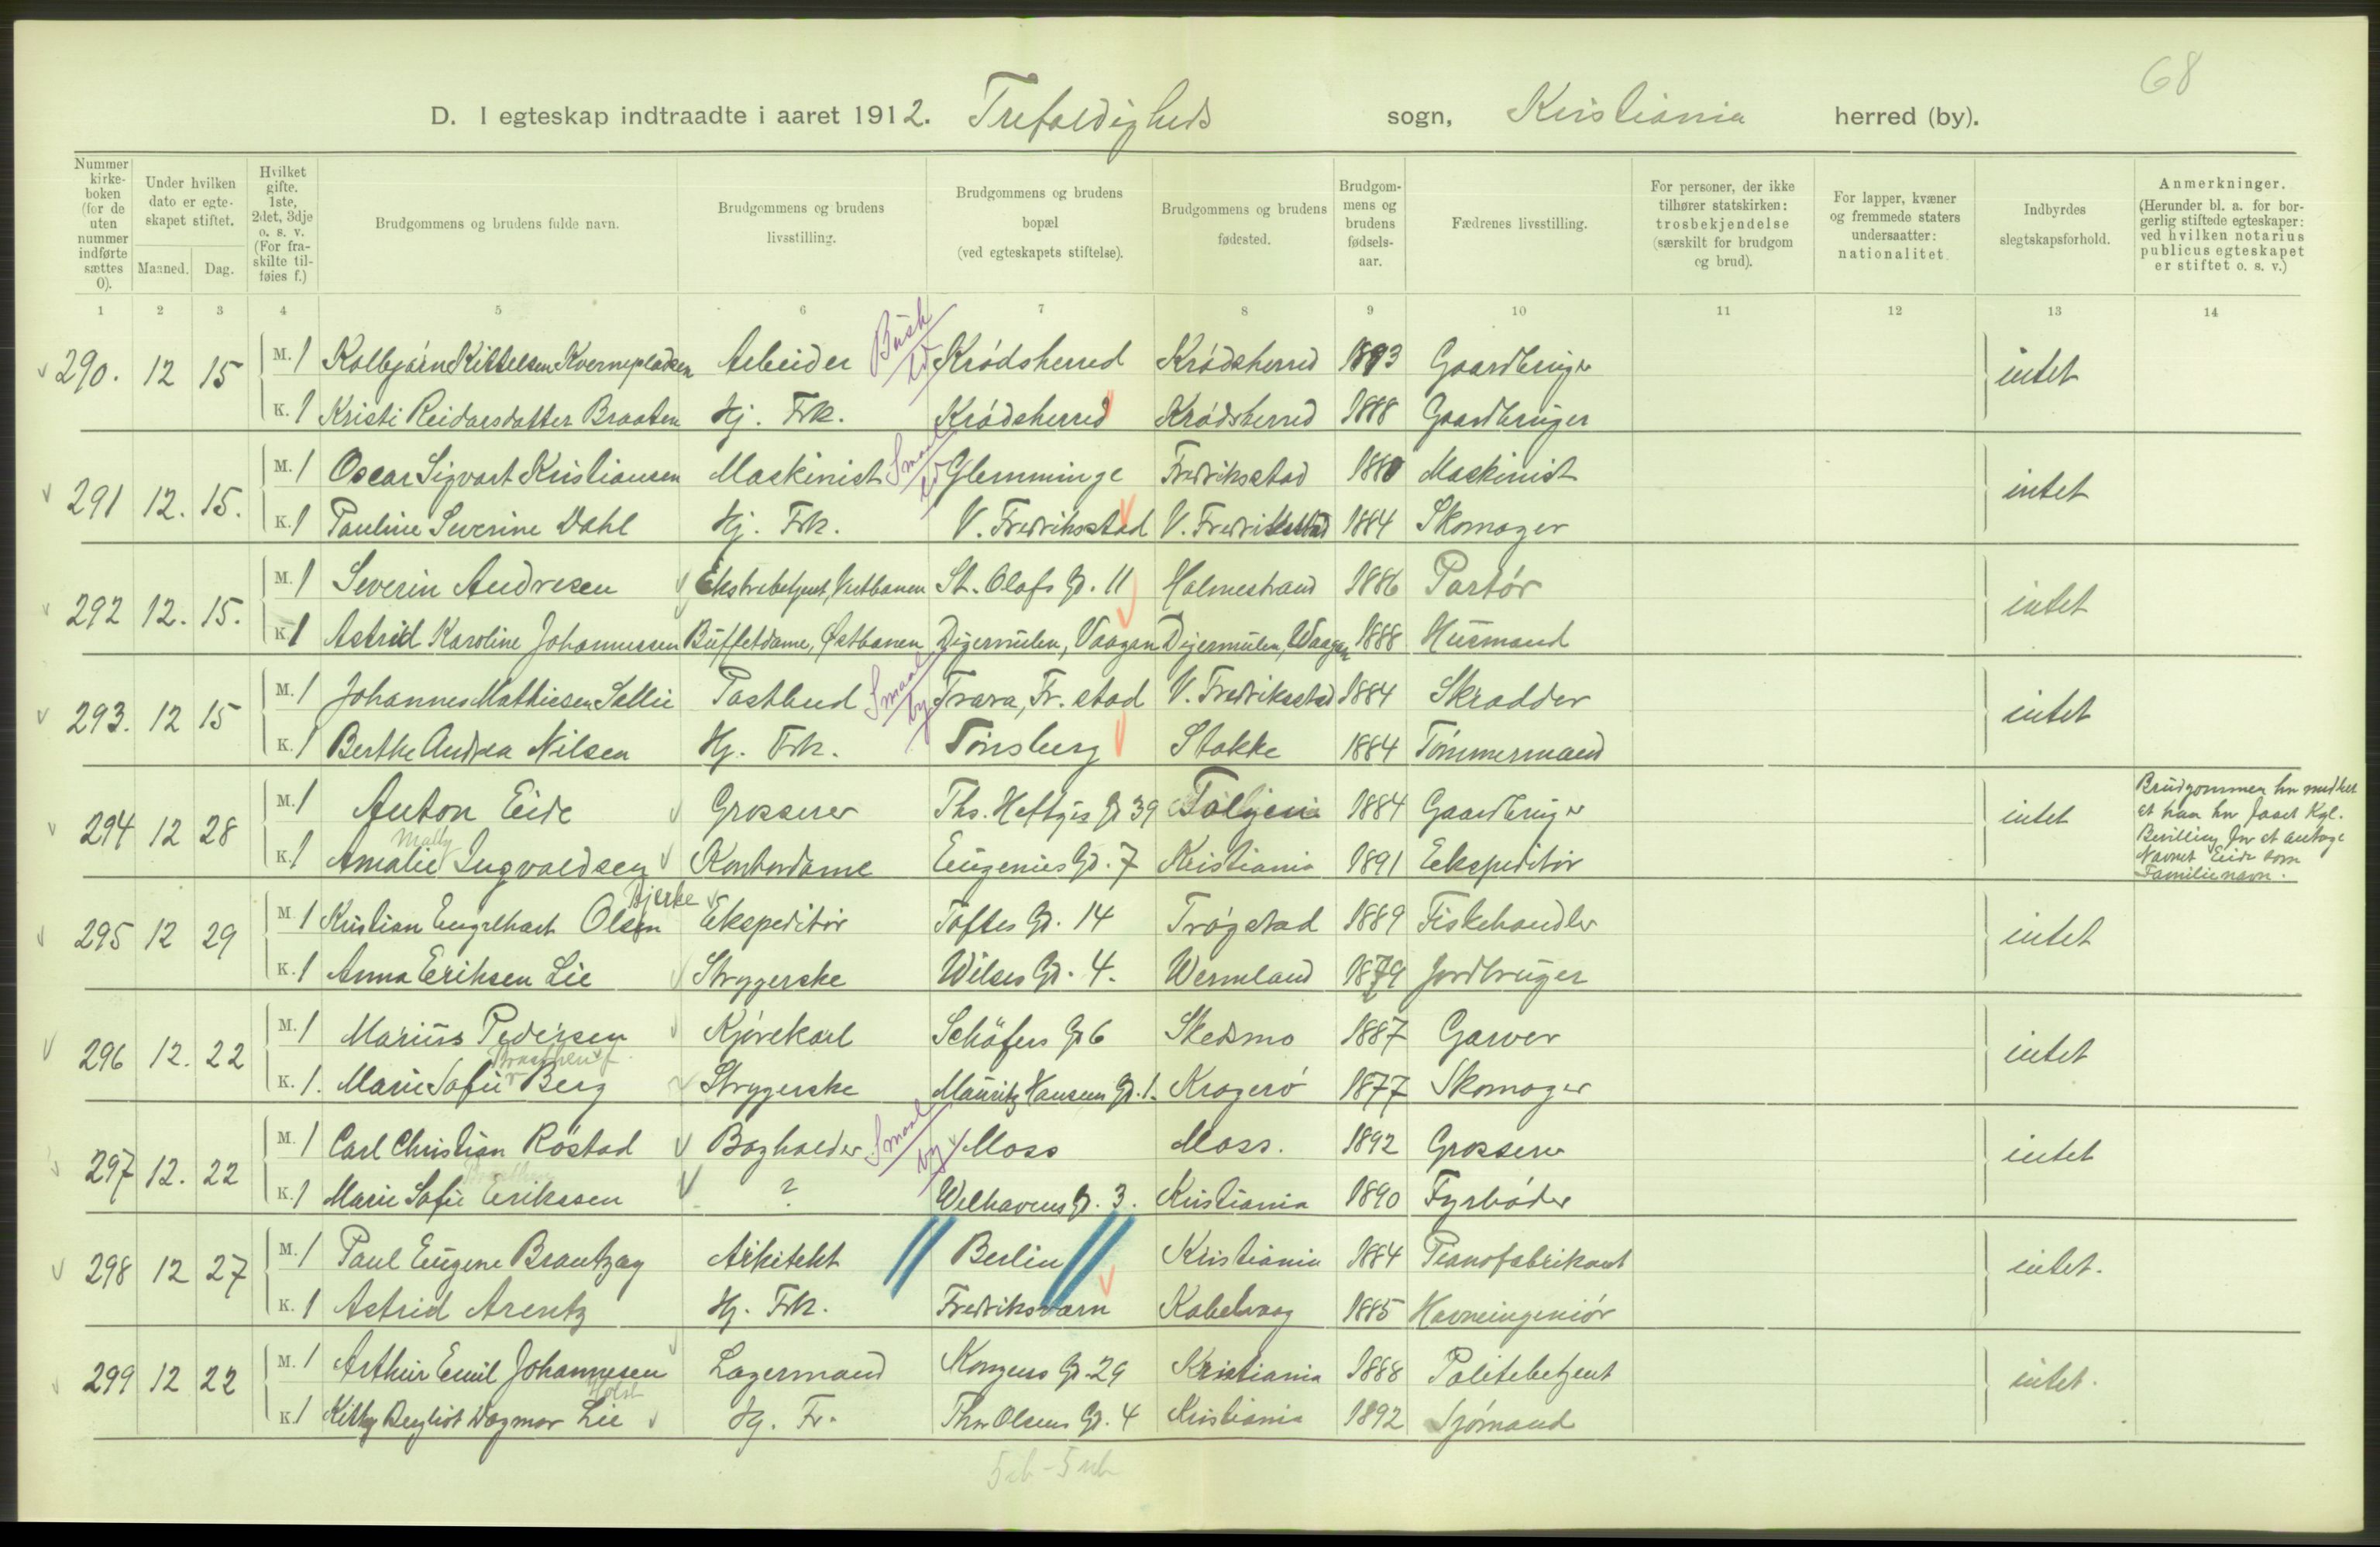 68
D. I egteskap indtraadte i aaret 1912. Trefoldigheds sogn, Kristiania herred (by).
Nummer kirkeboken (for de uten nummer indførte sættes 0).
Under hvilken dato er egteskapet stiftet.
Maaned. Dag.
Hvilket gifte. 1ste, 2det, 3dje o. s. v. (For fraskilte tilføies f.)
Brudgommens og brudens fulde navn.
Brudgommens og brudens livsstilling.
Brudgommens og brudens bopæl (ved egteskapets stiftelse).
Brudgommens og brudens fødested.
Brudgommens og brudens fødselsaar.
Fædrenes livsstilling.
For personer, der ikke tilhører statskirken: trosbekjendelse (særskilt for brudgom og brud).
For lapper, kvæner og fremmede staters undersaatter: nationalitet.
Indbyrdes slegtskapsforhold.
Anmerkninger. (Herunder bl. a. for borgerlig stiftede egteskaper: ved hvilken notarius publicus egteskapet er stiftet o. s. v.)
1 2 3 4 5 6 7 8 9 10 11 12 13 14
290. 12 15 M. 1 Kolbjørn Kittelsen Kvernepladsen Arbeider Busk ld Krødsherred Krødsherred 1893 Gaardbruger intet
K. 1 Kristi Reidarsdatter Braaten Hj. Frk. Krødsherred Krødsherred 1888 Gaardbruger
291 12. 15. M. 1 Oscar Sigvart Kristiansen Maskinist Smaal ld Glemminge Fredriksstad 1880 Maskinist intet
K. 1 Pauline Severine Dahl Hj. Frk. V. Fredriksstad V. Fredriksstad 1884 Skomager
292 12. 15. M. 1 Severin Andresen Ekstrabetjent, Vestbanen St. Olafs Gd. 11 Holmestrand 1886 Partør intet
K. 1 Astrid Karoline Johannessen Buffetdame, Østbanen Digermulen, Vaagan Digermulen, Vaagan 1888 Husmand
293. 12 15 M. 1 Johannes Mathiesen Sallie Postbud Smaal by Trara, Fr. stad V. Fredriksstad 1884 Skrædder intet
K. 1 Berthe Andrea Nilsen Hj. Frk. Tønsberg Stokke 1884 Tømmermand
294 12 28 M. 1 Anton Eide Grosserer Ths. Heftyes Gd 39 1884 Gaardbruger intet
Brudgommen har meddelt at han har faaet Kgl. Bevilling for at antage Navnet Eide som Familienavn.
K. 1 Amalie Mally Ingvaldsen Kontordame Eugenies Gd. 7 Kristiania 1891 Eekspeditør
295 12 29 M. 1 Kristian Engelhart Olsen Bjerke Ekspeditør Toftes Gd. 14 Trøgstad 1889 Fiskehandler intet
K. 1 Anna Eriksen Lie Strygerske Wilses Gd. 4. Wermland 1879 Jordbruger
296 12. 22 M. 1 Marius Pedersen Kjørekarl Schäfers Gd 6 Skedsmo 1887 Garver intet
K. 1. Marie Sofie Berg Strygerske Mauritz Hansens Gd. 1. Kragerø 1877 Skomager
297 12. 22 M. 1 Carl Christian Røstad Bogholder Smaal by Moss Moss. 1892 Grosserer intet
K. 1 Marie Sofie Erikssen ? Welhavens Gd. 3. Kristiania 1890 Fyrbøder
298 12 27 M. 1 Paul Eugene Brantzæg Arkitekt Berlin Kristiania 1884 Pianofabrikant intet.
K. 1 Astrid Arentz Hj. Frk. Fredriksværn Kabelvaag 1885 Havneingeniør
299 12 22 M. 1 Arthur Emil Johannesen Lagermand Kongens Gd. 29 Kristiania 1888 Politibetjent intet.
K. 1 Kitty Bergliot Dagmar Lie Holst Hj. Fr. Thor Olsens Gd. 4 Kristiania 1892 Sjømand